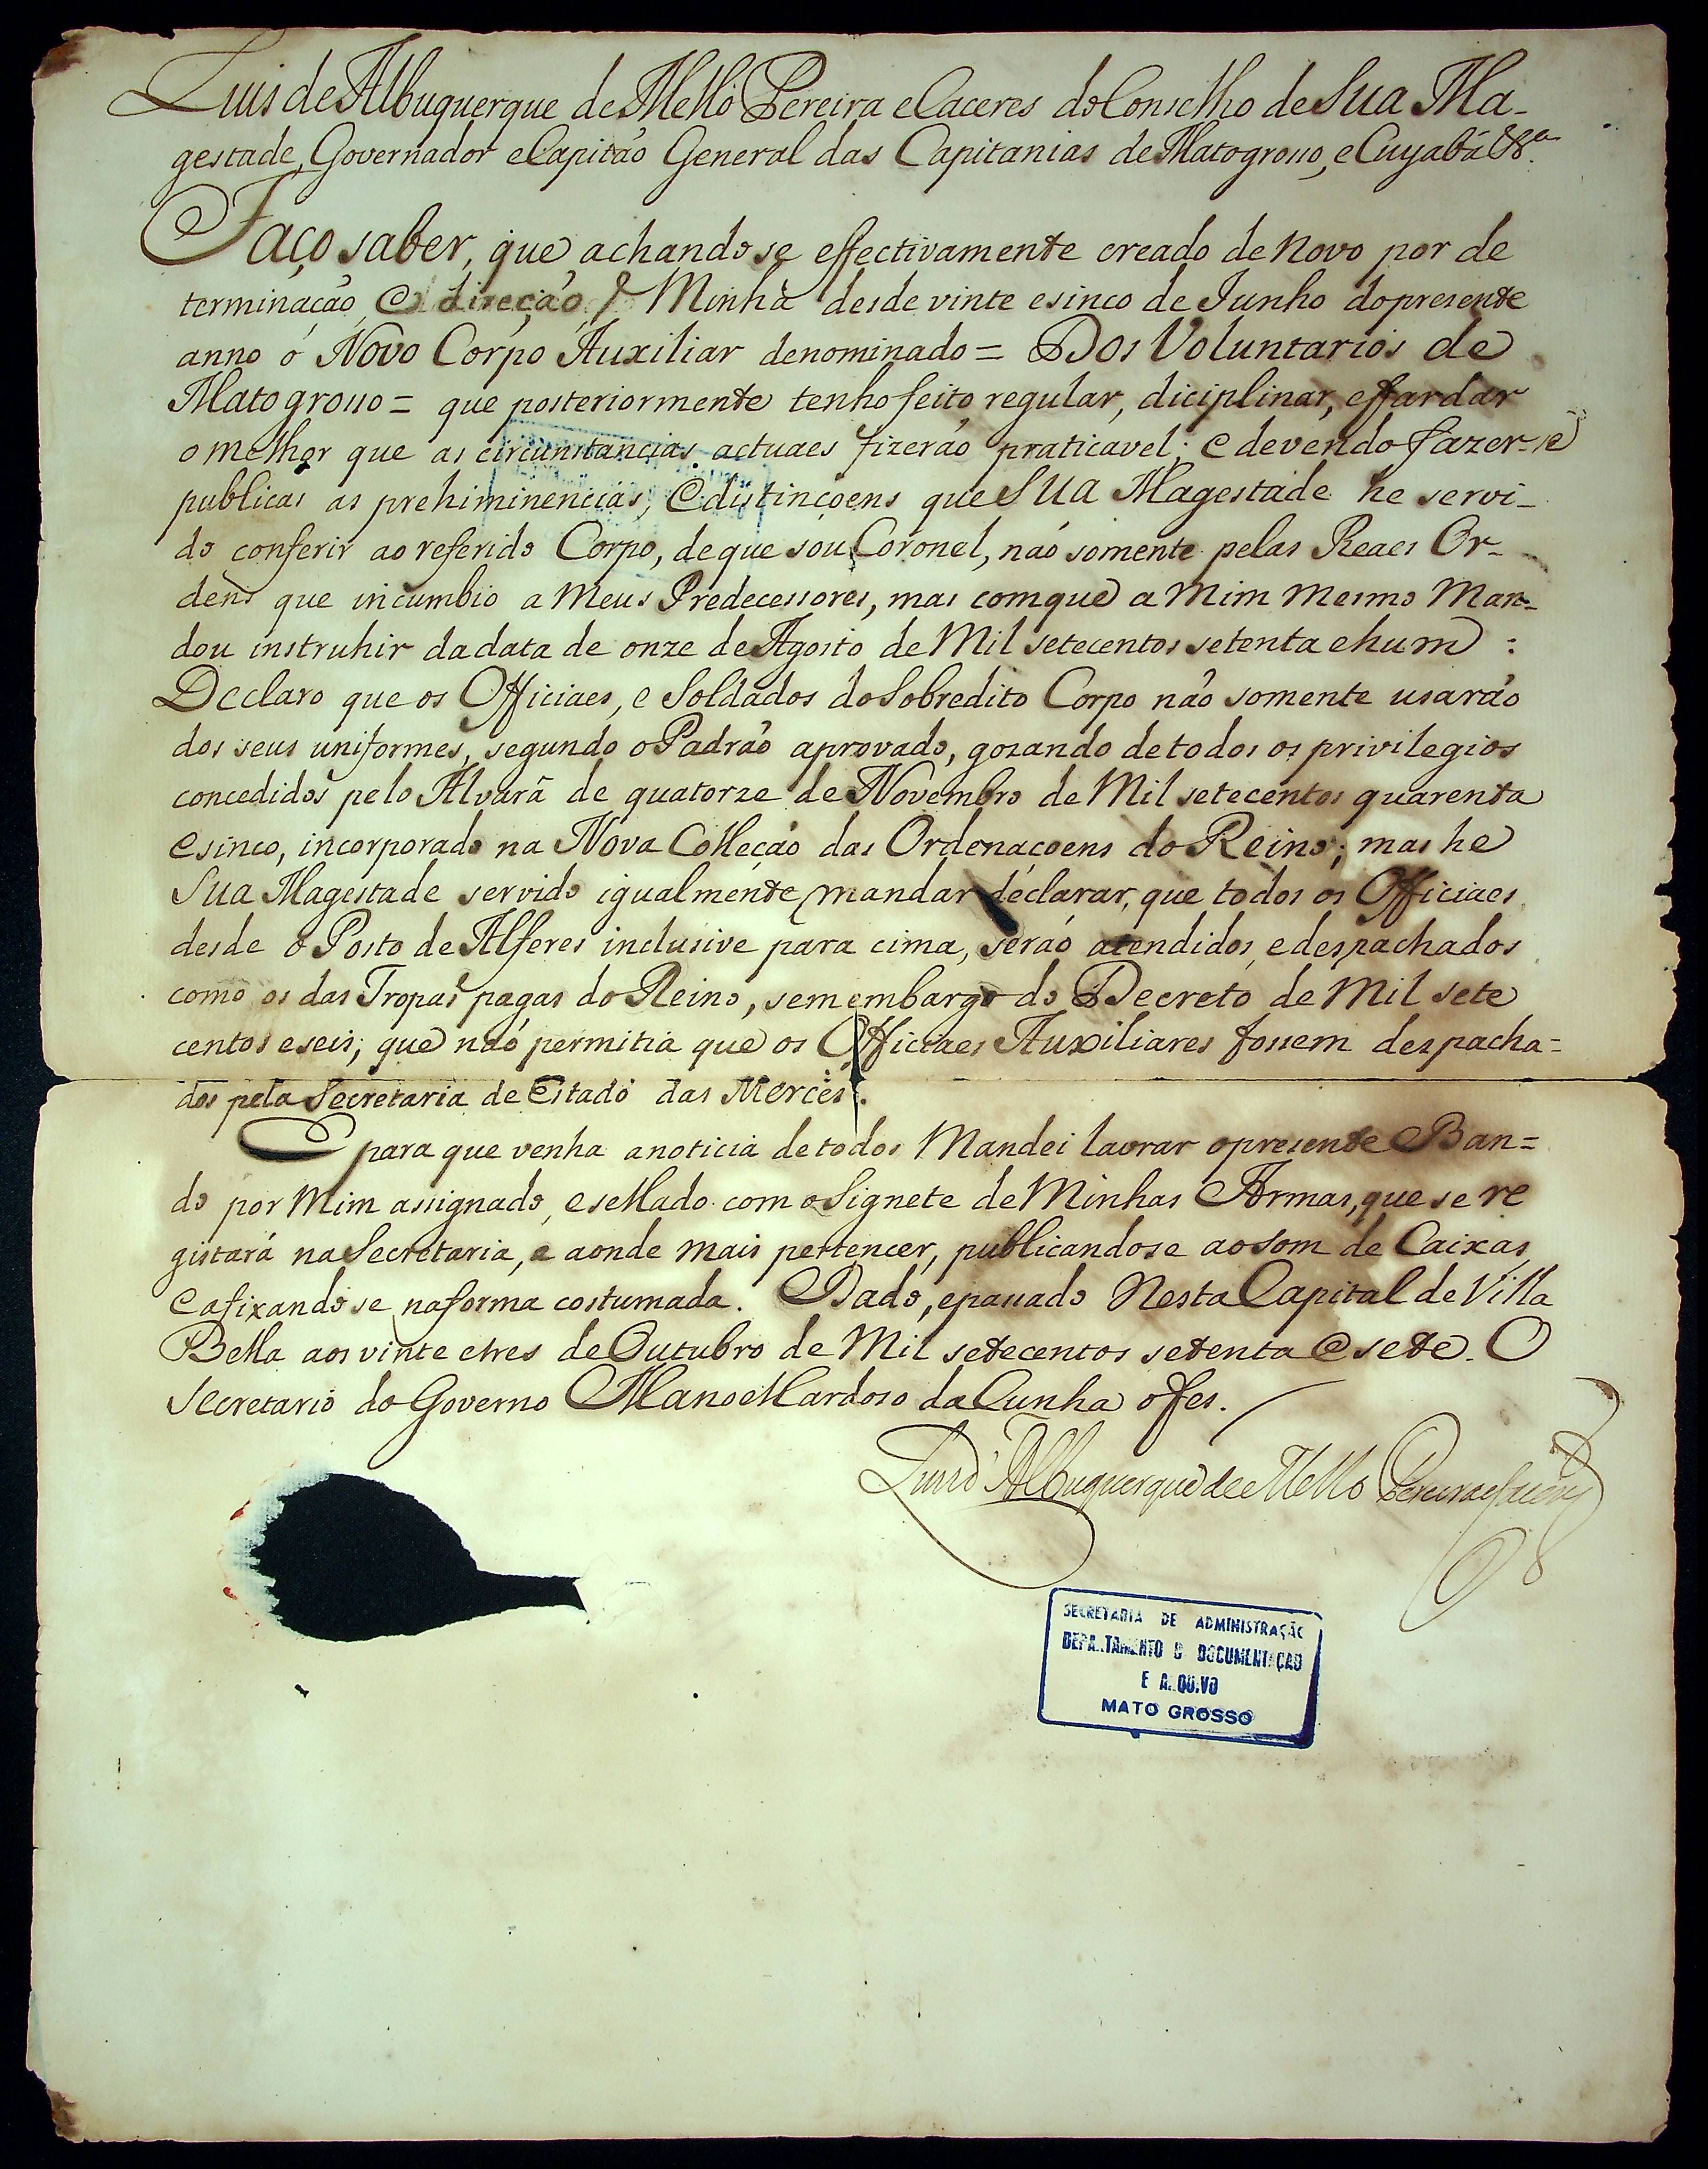 Luis de Albuquerque de Mello Pereira e Caceres do Conselho de Sua Ma-
gestade, Governador e Capitaõ General das Capitanias de Matogrosso, e Cuyabá &.ª
Faço saber, que achandose effectivamente creado de novo por de
terminaçaõ, e direçaõ Minha desde vinte e sinco de Junho do presente
anno o Novo Corpo Auxiliar denominado = Dos Voluntarios de
Matogrosso = que posteriormente tenho feito regular, diciplinar, e ffardar
o melhor que as circunstancias actuaes fizeraõ praticavel; e devendo fazer-se
publicas as prehiminencias, e distinçoens que Sua Magestade he servi-
do conferir ao referido Corpo, de que sou Coronel, naõ somente pelas Reaes Or-
dens que incumbio a Meus Predecessores, mas com que a Mim mesmo Man-
dou instruhir da data de onze de Agosto de Mil setecentos setenta e hum :
Declaro que os Officiaes, e Soldados do Sobredito Corpo naõ somente usaraõ
dos seus uniformes, segundo o Padraõ aprovado, gozando de todos os privilegios
concedidos pelo Alvará de quatorze de Novembro de Mil setecentos quarenta
e sinco, incorporado na Nova Colleçaõ das Ordenaçoens do Reino; mas he
Sua Magestade servido igualmente mandar declarar, que todos os Officiaes
desde o Posto de Alferes inclusive para cima, seraõ atendidos, e despachados
como os das Tropas pagas do Reino, sem embargo do Decreto de Mil sete
centos e seis; que naõ permitia que os Officiaes Auxiliares fossem despacha=
dos pela Secretaria de Estado das Mercês.
E para que venha a noticia de todos Mandei lavrar o presente Ban=
do por Mim assignado, e sellado com o Signete de Minhas Armas, que se re
gistará na Secretaria, e aonde mais pertencer, publicandose ao som de Caixas,
e afixandose na forma costumada. Dado, e passado Nesta Capital de Villa
Bella aos vinte e tres de Outubro de Mil setecentos setenta e sete. O
Secretario do Governo Manoel Cardoso da Cunha o fes.
Luis d'Albuquerque de Mello Pereira e Caceres
SECRETARIA DE ADMINISTRAÇÃO
DEPARTAMENTO D DOCUMENTAÇÃO
E ARQUIVO
MATO GROSSO